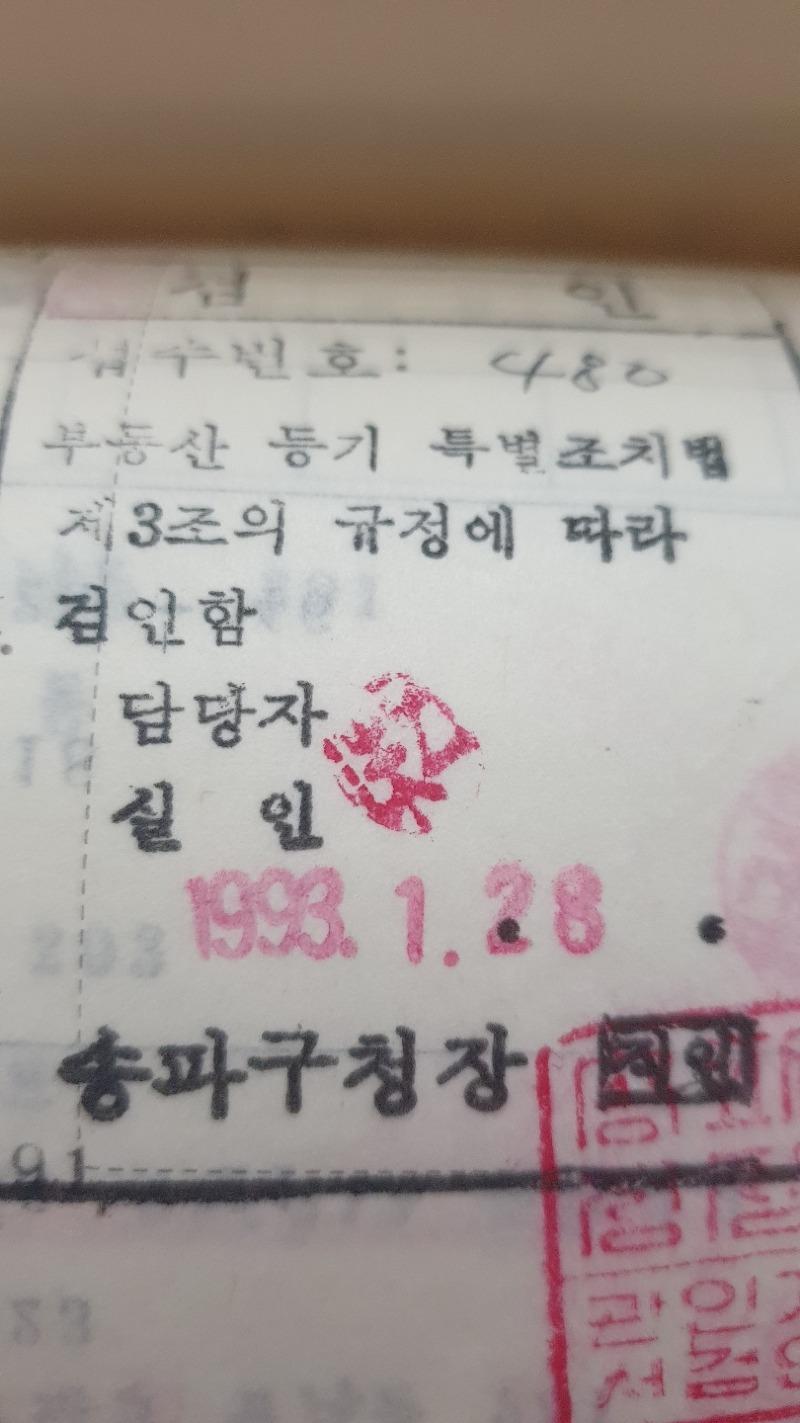 검 인
접수번호: 480
부동산 등기 특별조치법
제3조의 규정에 따라
검인함
담당자
실 인
1993. 1. 28
송파구청장 직인
91
203
23